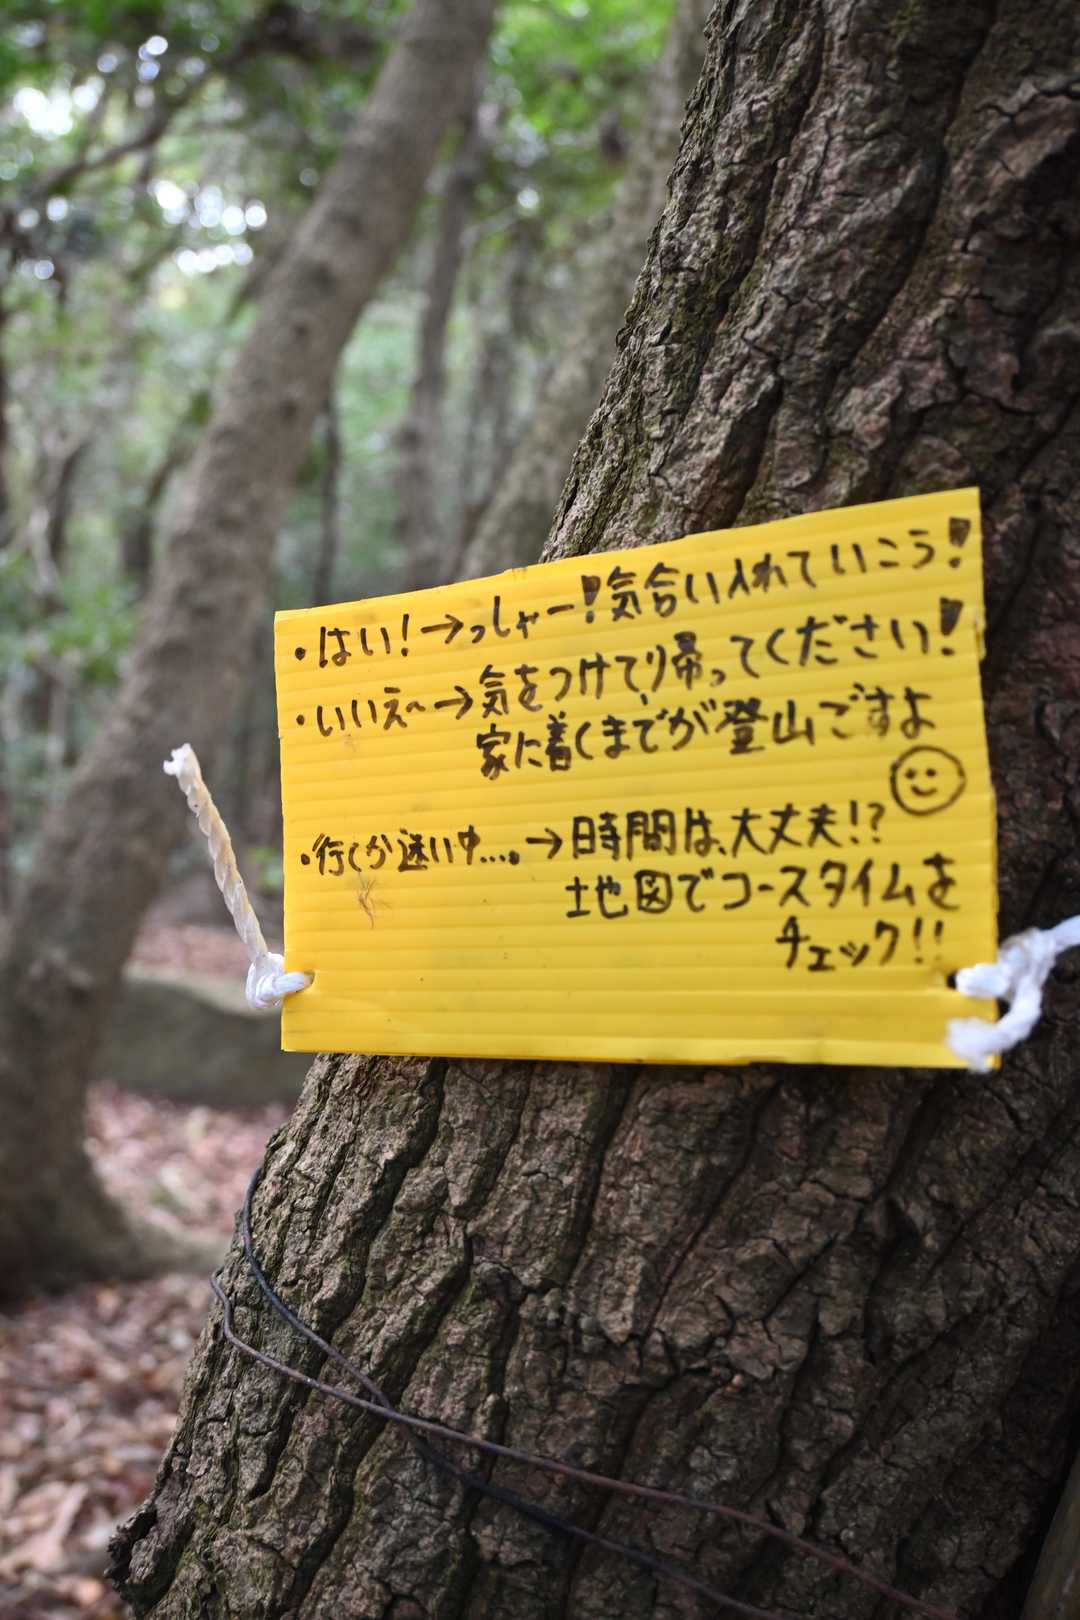 ・はい!→っしゃー!気合い入れていこう!
・いいえ〜→気をつけてり帰ってください!
家に着くまでが登山ですよ
・行くか迷い中....。→時間は、大丈夫!?
地図でコースタイムを
チェック!!